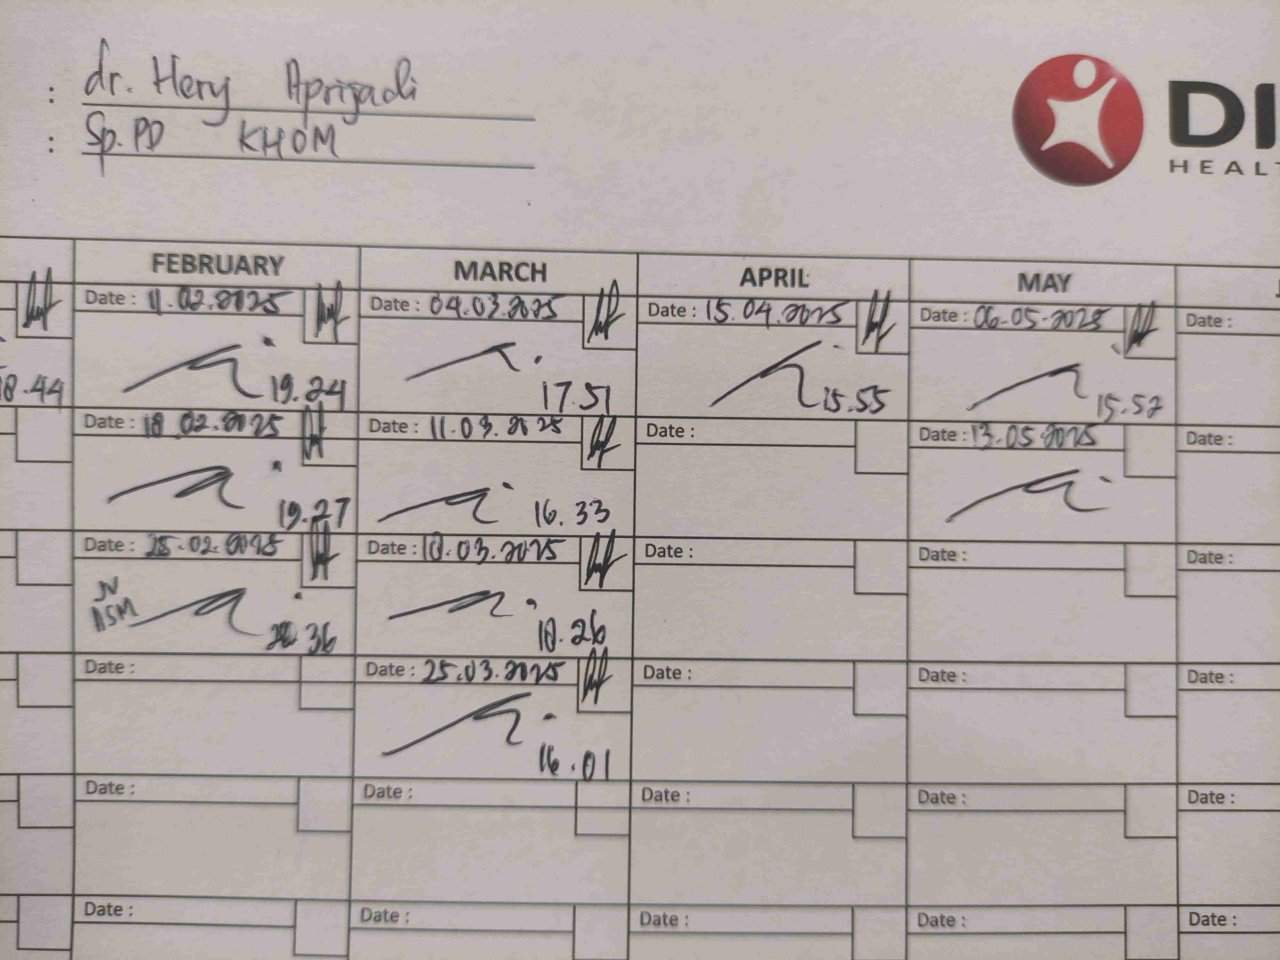 : dr. Hery Apriyadi
: Sp.PD KHOM
DI
HEALT
FEBRUARY MARCH APRIL MAY
Date : 11.02.2025 Date : 04.03.2025 Date : 15.04.2025 Date : 06.05.2025 Date :
18.44 19.24 17.51 15.55 15.52
Date : 18.02.2025 Date : 11.03.2025 Date : Date : 13.05.2025 Date :
19.27 16.33
Date : 25.02.2025 Date : 18.03.2025 Date : Date : Date :
ASM 36 18.26
Date : Date : 25.03.2025 Date : Date : Date :
16.01
Date : Date : Date : Date : Date :
Date : Date : Date : Date : Date :